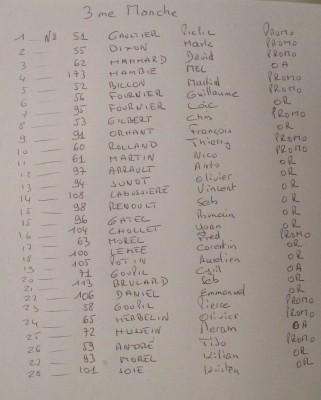 3 me Manche
1 — No 51 GAULTIER PROMO
2 — 55 DIXON Mark PROMO
3 — 62 MAHMARD David OA
4 — 173 MAMBIE MEL PROMO
5 — 52 BILLON Martial PROMO
6 — 56 FOURNIER Guillaume OR
7 — 95 FOURNIER Loïc PROMO
8 — 53 GILBERT Chris OR
9 — 91 ORHANT François PROMO
10 — 60 ROLLAND Thierry PROMO
11 — 61 MARTIN Nico OR
12 — 97 ARRAULT Anto OR
13 — 94 JUNOT Olivier OR
14 — 108 Vincent OR
15 — 98 RENOULT Seb OR
15 — 96 GATEL Romain OR
16 — 104 CHOLLET Yoan OR
17 — 63 MOREL Fred PROMO
18 — 100 LEMEE Corentin OR
19 — 105 POTTIN Aurelien OR
20 — 71 GOUPIL Cyril OA
21 — 113 BRULARD Seb OR
22 — 106 DANIEL Emmanuel OR
23 — 58 GOUPIL Pierre PROMO
24 — 65 HERBELIN Olivier PROMO
25 — 72 HUSSEIN Meram OA
26 — 59 ANDRÉ PROMO
27 — 93 MOREL Wilian OR
28 — 101 JOIE OR